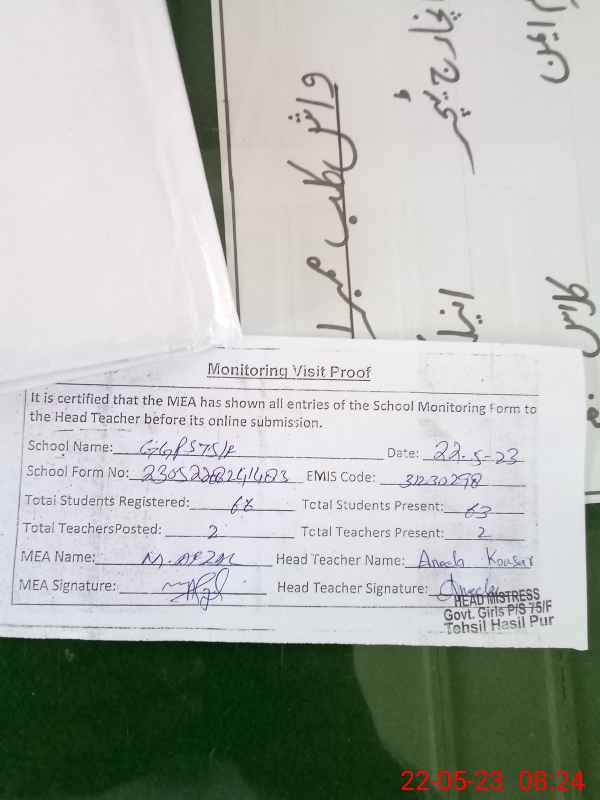 واش کلب نمبر 1
انچارج ٹیچر
Monitoring Visit Proof
It is certified that the MEA has shown all entries of the School Monitoring Form to
the Head Teacher before its online submission.
School Name: GGPS 75/F Date: 22-5-23
School Form No: EMIS Code: 31230298
Total Students Registered: Total Students Present: 63
Total TeachersPosted: 2 Total Teachers Present: 2
MEA Name: M. AFZAL Head Teacher Name: Aneeb Kousar
MEA Signature: Head Teacher Signature:
HEAD MISTRESS
Govt. Girls P/S 75/F
Tehsil Hasil Pur
22-05-23 08:24